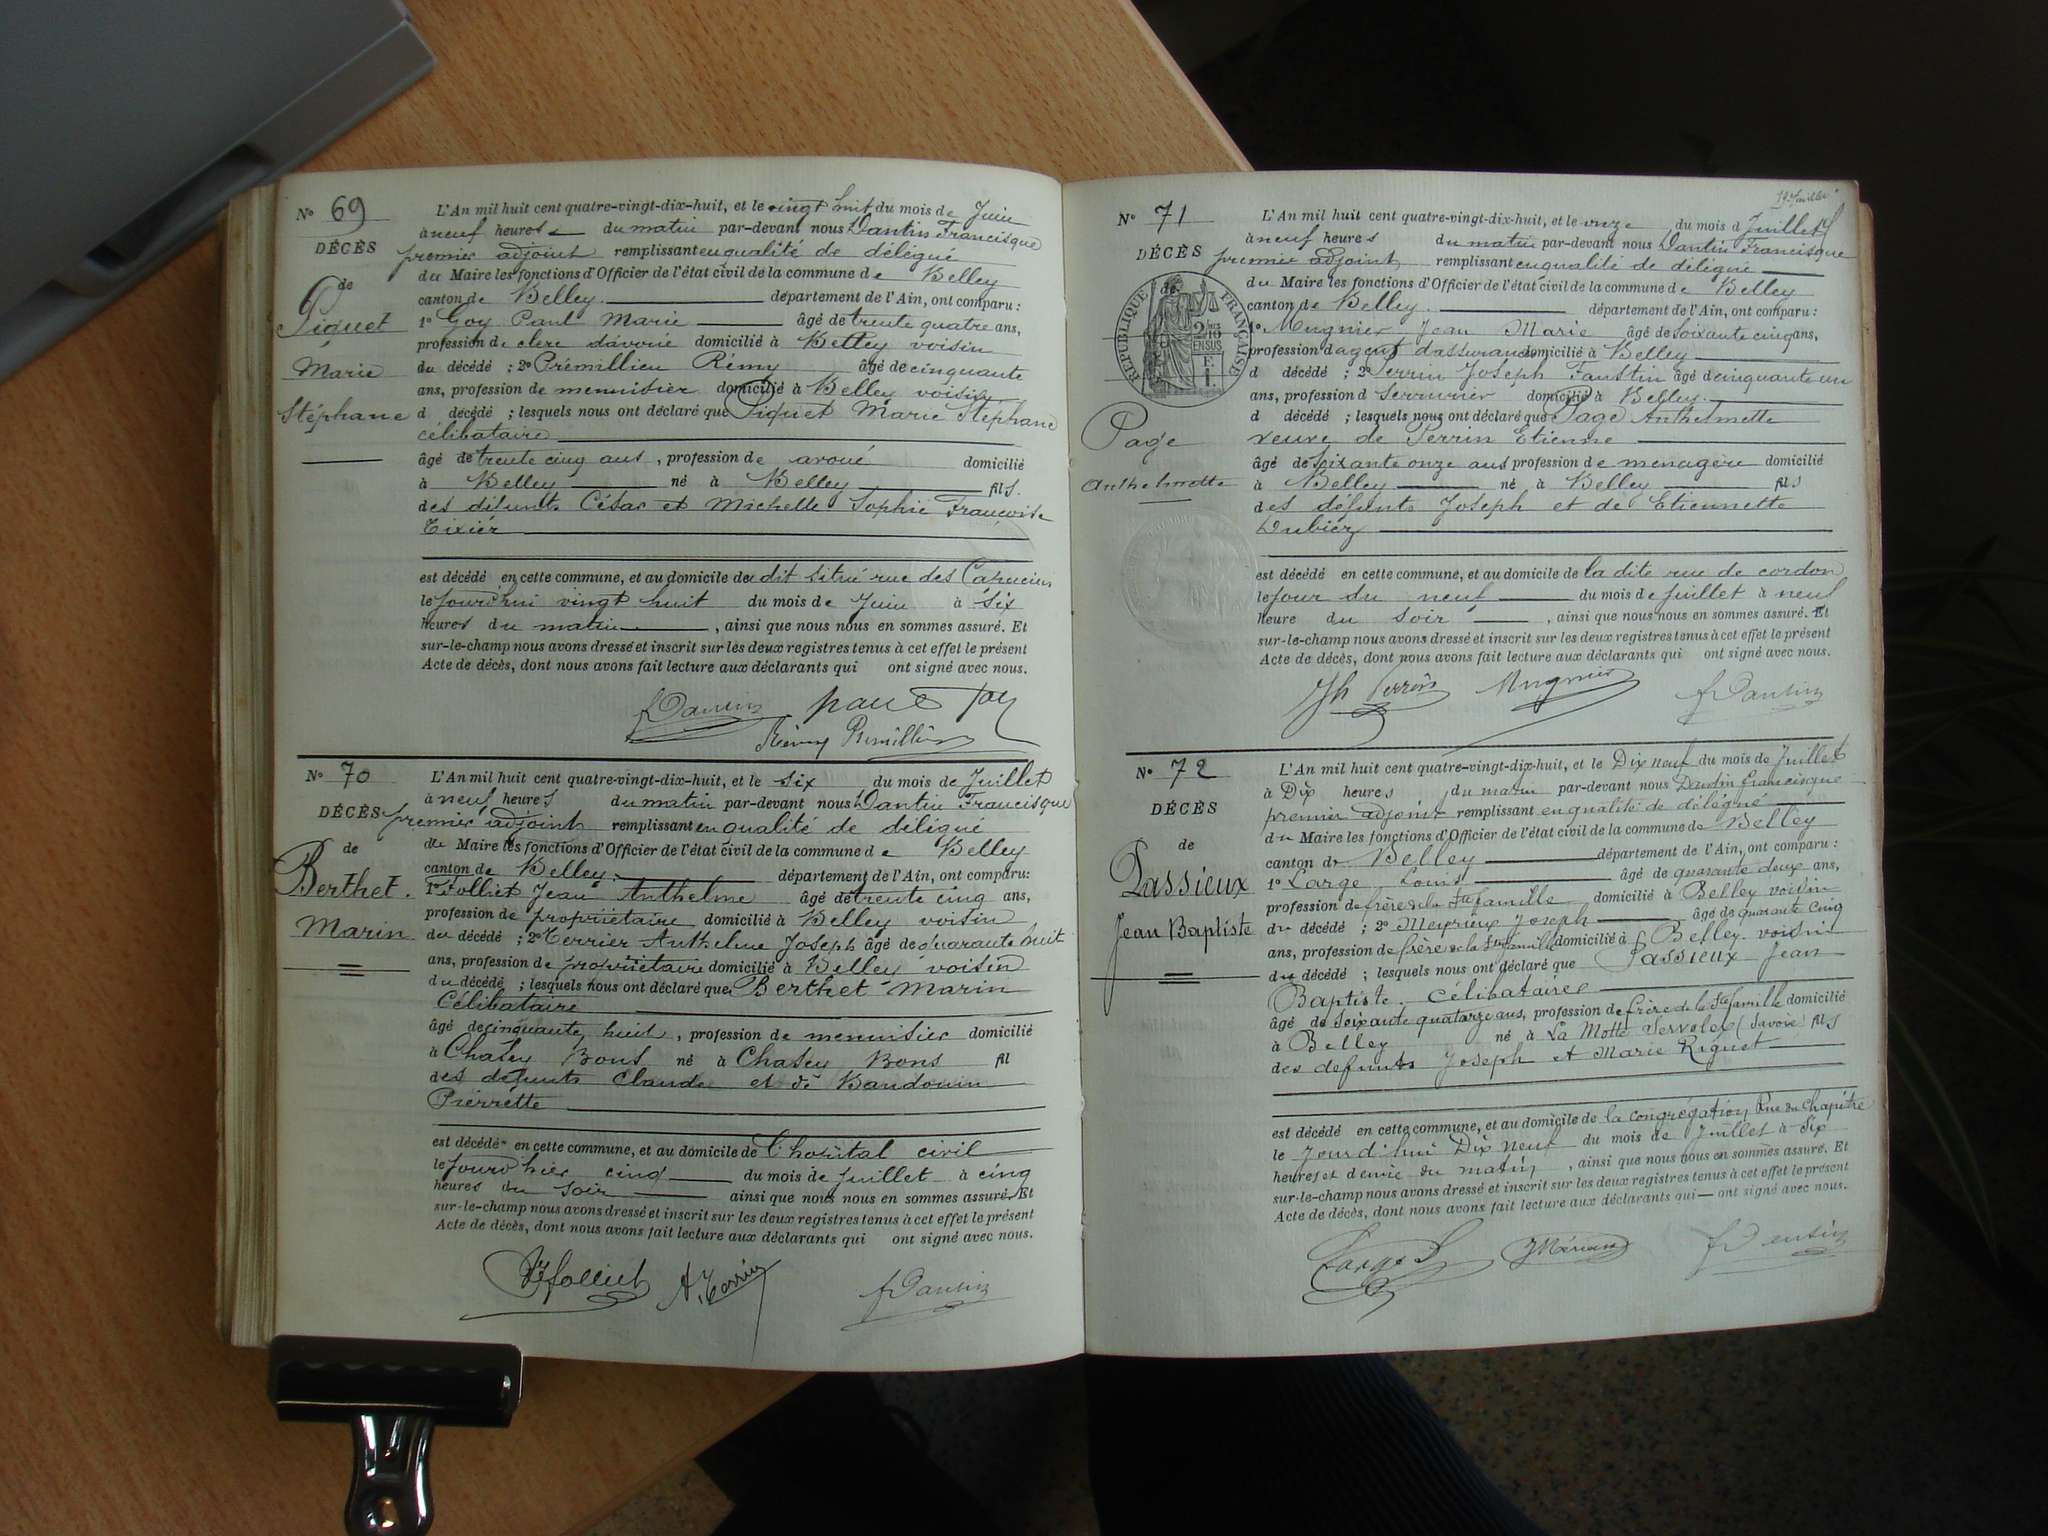 N° 69
DÉCÈS
de
Piquet
Marie
Stéphane
L'An mil huit cent quatre-vingt-dix-huit, et le vingt huit du mois de Juin
à neuf heures du matin par-devant nous Dantin Francisque
premier adjoint remplissant en qualité de délégué
du Maire les fonctions d'Officier de l'état civil de la commune de Belley
canton de Belley. département de l'Ain, ont comparu :
1° Goy Paul Marie âgé de trente quatre ans,
profession de clerc d'avoué domicilié à Belley voisin
du décédé ; 2° Prémillieu Rémy âgé de cinquante
ans, profession de menuisier domicilié à Belley voisin
d décédé ; lesquels nous ont déclaré que Piquet Marie Stéphane
célibataire
âgé de trente cinq ans, profession de avoué domicilié
à Belley né à Belley fils
des défunts César et Michelle Sophie Françoise
Tixier
est décédé en cette commune, et au domicile du dit situé rue des Capucins
le jourd'hui vingt huit du mois de Juin à six
heures du matin, ainsi que nous nous en sommes assuré. Et
sur-le-champ nous avons dressé et inscrit sur les deux registres tenus à cet effet le présent
Acte de décès, dont nous avons fait lecture aux déclarants qui ont signé avec nous.
f Dantin paul Goy
Rémy Prémillieu
N° 70
DÉCÈS
de
Berthet.
Marin
L'An mil huit cent quatre-vingt-dix-huit, et le six du mois de Juillet
à neuf heures du matin par-devant nous Dantin Francisque
premier adjoint remplissant en qualité de délégué
du Maire les fonctions d'Officier de l'état civil de la commune de Belley
canton de Belley. département de l'Ain, ont comparu:
1° Folliet Jean Anthelme âgé de trente cinq ans,
profession de propriétaire domicilié à Belley voisin
du décédé ; 2° Terrier Anthelme Joseph âgé de quarante huit
ans, profession de propriétaire domicilié à Belley voisin
du décédé ; lesquels nous ont déclaré que Berthet Marin
Célibataire
âgé de cinquante huit, profession de menuisier domicilié
à Chazey Bons né à Chazey Bons fil
des défunts Claude et de Baudouin
Pierrette
est décédé en cette commune, et au domicile de l'hôpital civil
le jourd'hier cinq du mois de juillet à cinq
heures du soir ainsi que nous nous en sommes assuré. Et
sur-le-champ nous avons dressé et inscrit sur les deux registres tenus à cet effet le présent
Acte de décès, dont nous avons fait lecture aux déclarants qui ont signé avec nous.
folliet A. Terrier f Dantin
N° 71
DÉCÈS
de
RÉPUBLIQUE FRANÇAISE
Page
Anthelmette
L'An mil huit cent quatre-vingt-dix-huit, et le onze du mois d Juillet
à neuf heures du matin par-devant nous Dantin Francisque
premier adjoint remplissant en qualité de délégué
du Maire les fonctions d'Officier de l'état civil de la commune de Belley
canton de Belley. département de l'Ain, ont comparu :
1° Mugnier Jean Marie âgé de soixante cinq ans,
profession d'agent d'assurances domicilié à Belley
d décédé ; 2° Perrin Joseph Faustin âgé de cinquante un
ans, profession d serrurier domicilié à Belley.
d décédé ; lesquels nous ont déclaré que Page Anthelmette
veuve de Perrin Etienne
âgé de soixante onze ans profession de ménagère domicilié
à Belley né à Belley fils
des défunts Joseph et de Etiennette
Dubiez
est décédé en cette commune, et au domicile de la dite rue de cordon
le jour du neuf du mois de juillet à neuf
heure du soir, ainsi que nous nous en sommes assuré. Et
sur-le-champ nous avons dressé et inscrit sur les deux registres tenus à cet effet le présent
Acte de décès, dont nous avons fait lecture aux déclarants qui ont signé avec nous.
Jh Perrin Mugnier f Dantin
N° 72
DÉCÈS
de
Passieux
Jean Baptiste
L'An mil huit cent quatre-vingt-dix-huit, et le Dix neuf du mois de Juillet
à Dix heures du matin par-devant nous Dantin Francisque
premier adjoint remplissant en qualité de délégué
du Maire les fonctions d'Officier de l'état civil de la commune de Belley
canton de Belley département de l'Ain, ont comparu :
1° Large Louis âgé de quarante deux ans,
profession de frère de la Ste famille domicilié à Belley voisin
du décédé ; 2° Meyrieux Joseph âgé de quarante cinq
ans, profession de frère de la Ste famille domicilié à Belley voisin
du décédé ; lesquels nous ont déclaré que Passieux Jean
Baptiste. Célibataire
âgé de soixante quatorze ans, profession de frère de la Ste famille domicilié
à Belley né à La Motte Servolex (Savoie) fils
des defunts Joseph et Marie Riguet
est décédé en cette commune, et au domicile de la congrégation, Rue du Chapitre
le jourd'hui Dix neuf du mois de Juillet à six
heures et demie du matin, ainsi que nous nous en sommes assuré. Et
sur-le-champ nous avons dressé et inscrit sur les deux registres tenus à cet effet le présent
Acte de décès, dont nous avons fait lecture aux déclarants qui — ont signé avec nous.
Large L f Dantin